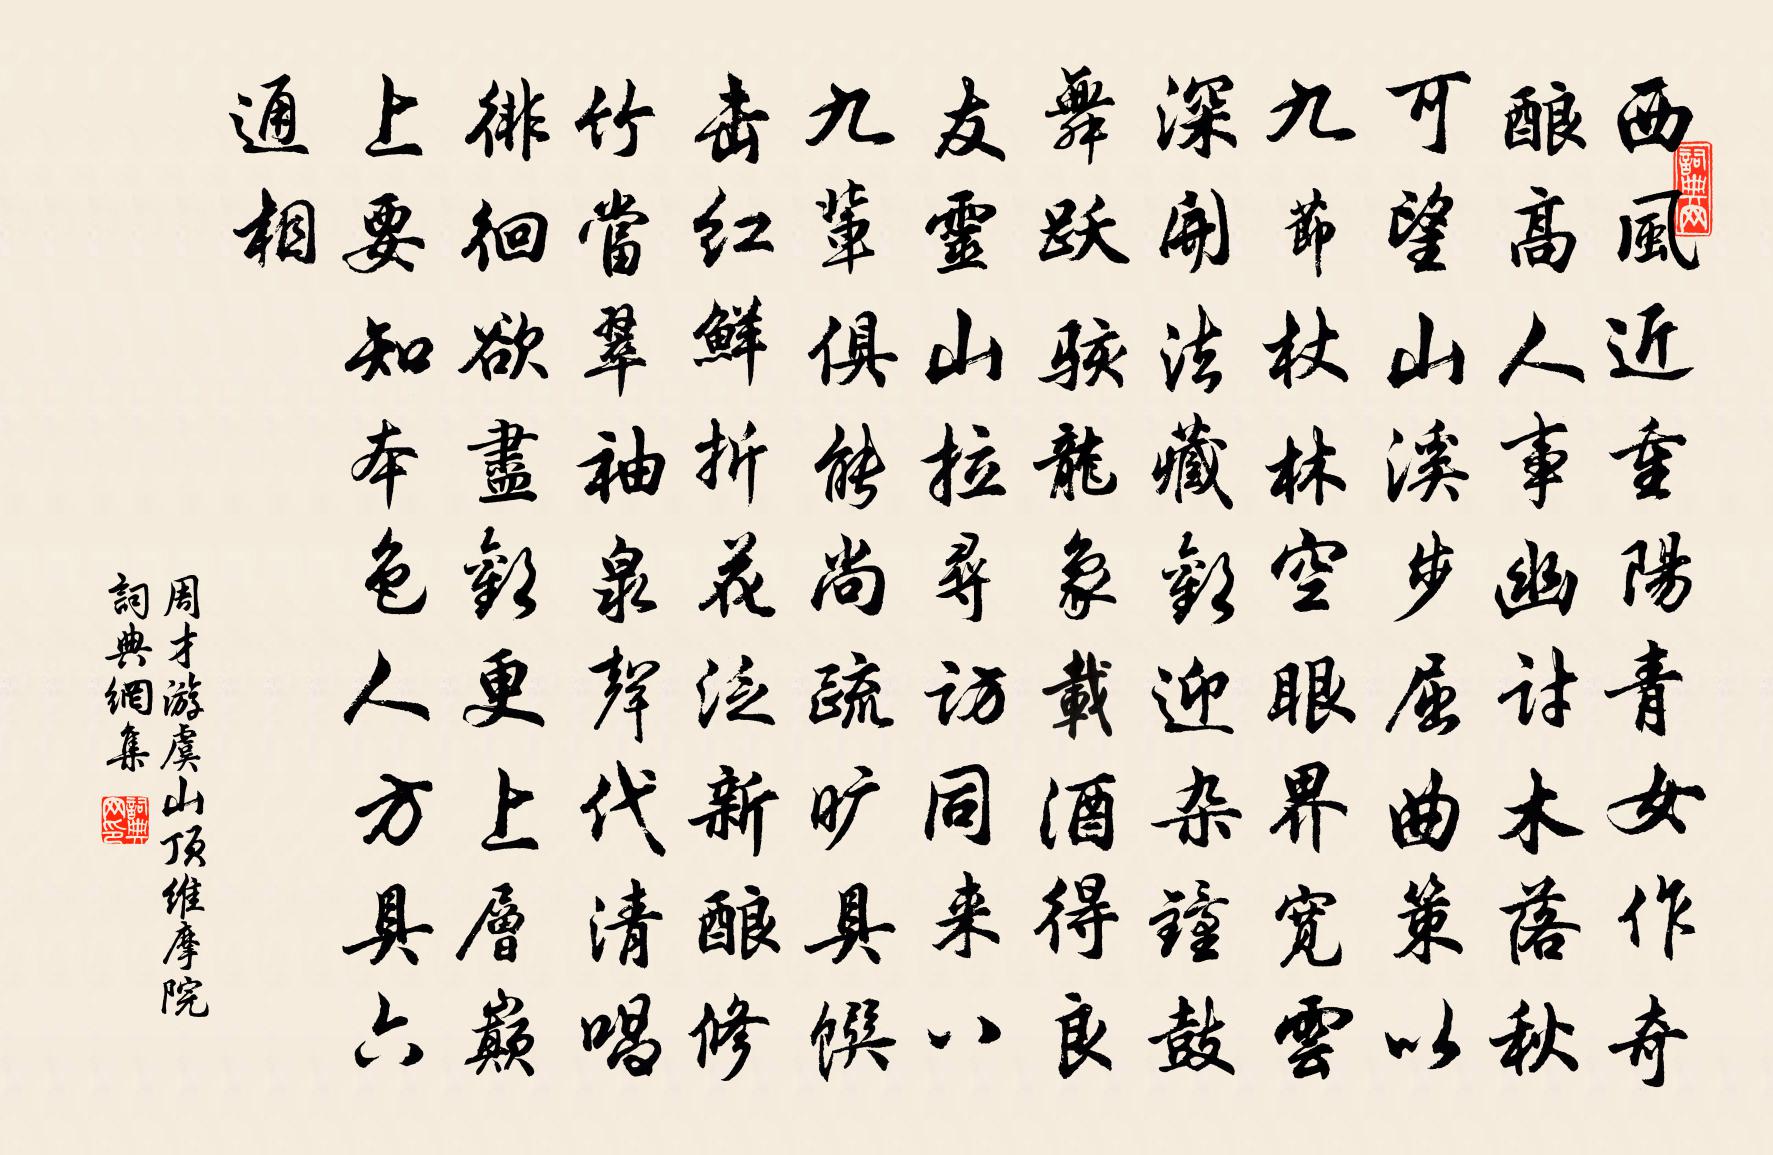 西風近重陽青女作奇
酿高人事幽討木落秋
可望山溪步屈曲策以
九節杖林空眼界寬雲
深開法藏歡迎杂鐘鼓
舞跃駭龍象載酒得良
友靈山拉尋訪同来八
九輩俱能尚疏旷具饌
击红鮮折花泛新酿修
竹當翠袖泉聲代清唱
徘徊欲盡歡更上層巔
上要知本色人方具六
通相
周才游虞山頂維摩院
詞典網集
詞典网
詞典网印